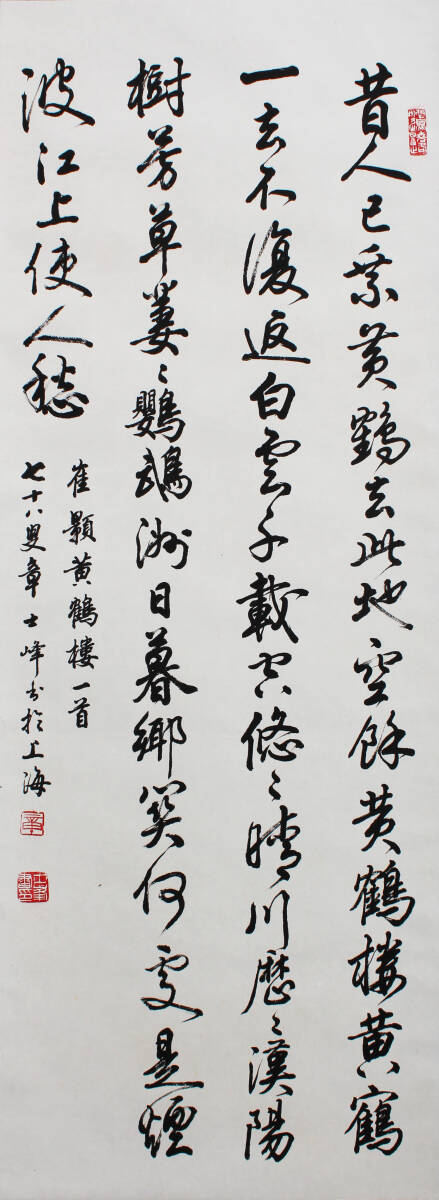 昔人已乘黄鶴去此地空餘黄鶴樓黄鶴
一去不復返白雲千載空悠〻晴川歷〻漢陽
樹芳草萋〻鸚鵡洲日暮鄉關何處是煙
波江上使人愁
崔顥黄鶴樓一首
七十八叟章士峰書於上海